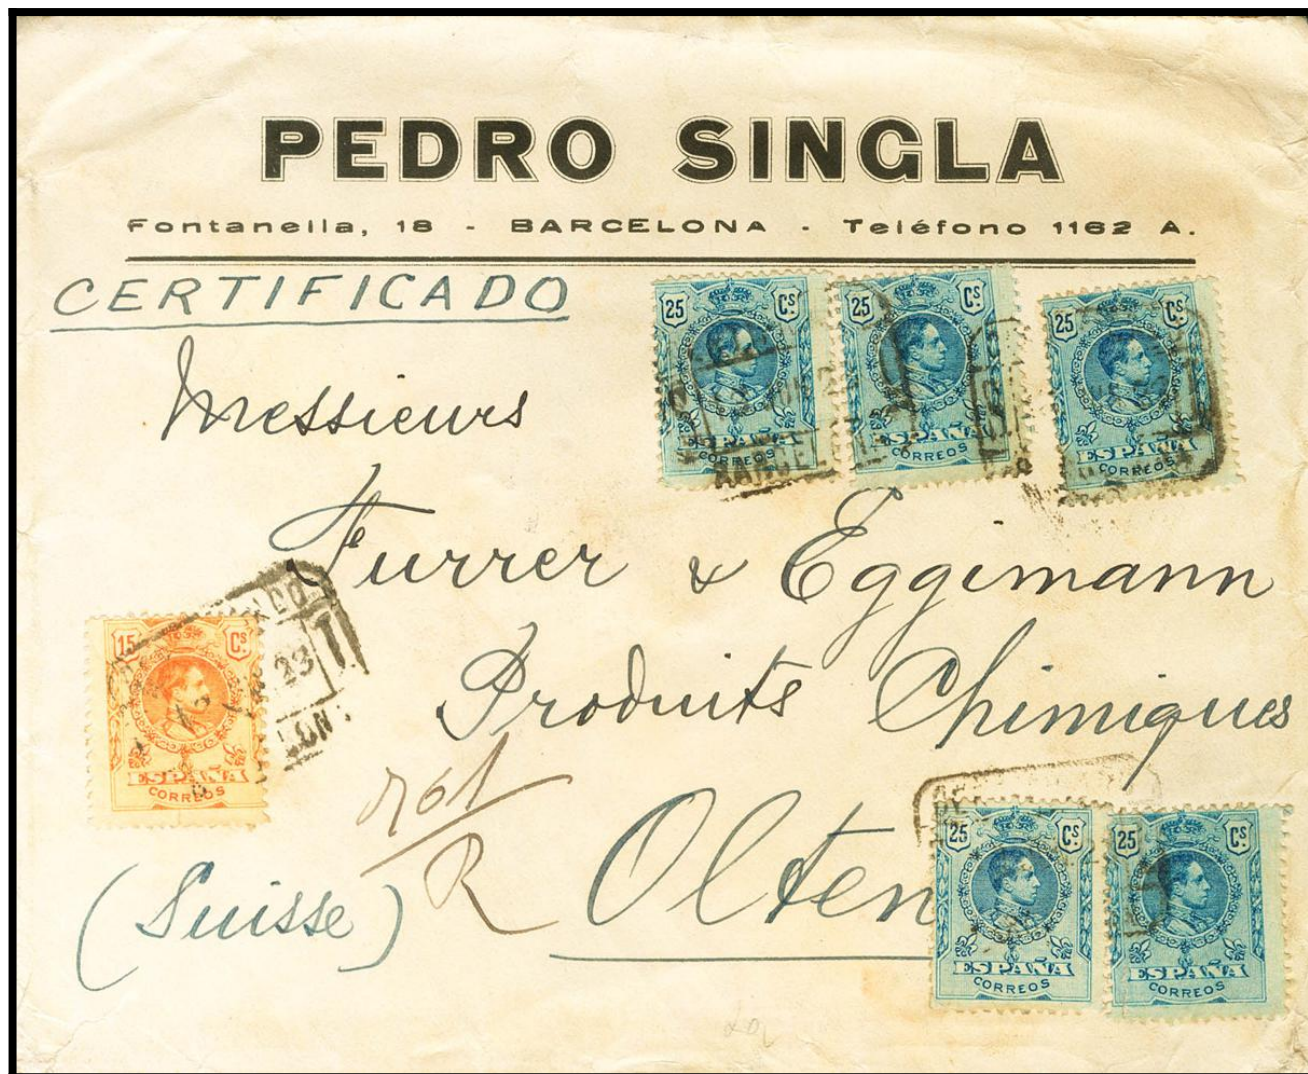 PEDRO SINGLA
Fontanella, 18 - BARCELONA - Teléfono 1162 A.
CERTIFICADO
25 Cs ESPAÑA CORREOS
25 Cs ESPAÑA CORREOS
25 Cs ESPAÑA CORREOS
Messieurs
Furrer & Eggimann
15 Cs ESPAÑA CORREOS
23
Produits Chimiques
R
Olten
(Suisse)
25 Cs ESPAÑA CORREOS
25 Cs ESPAÑA CORREOS